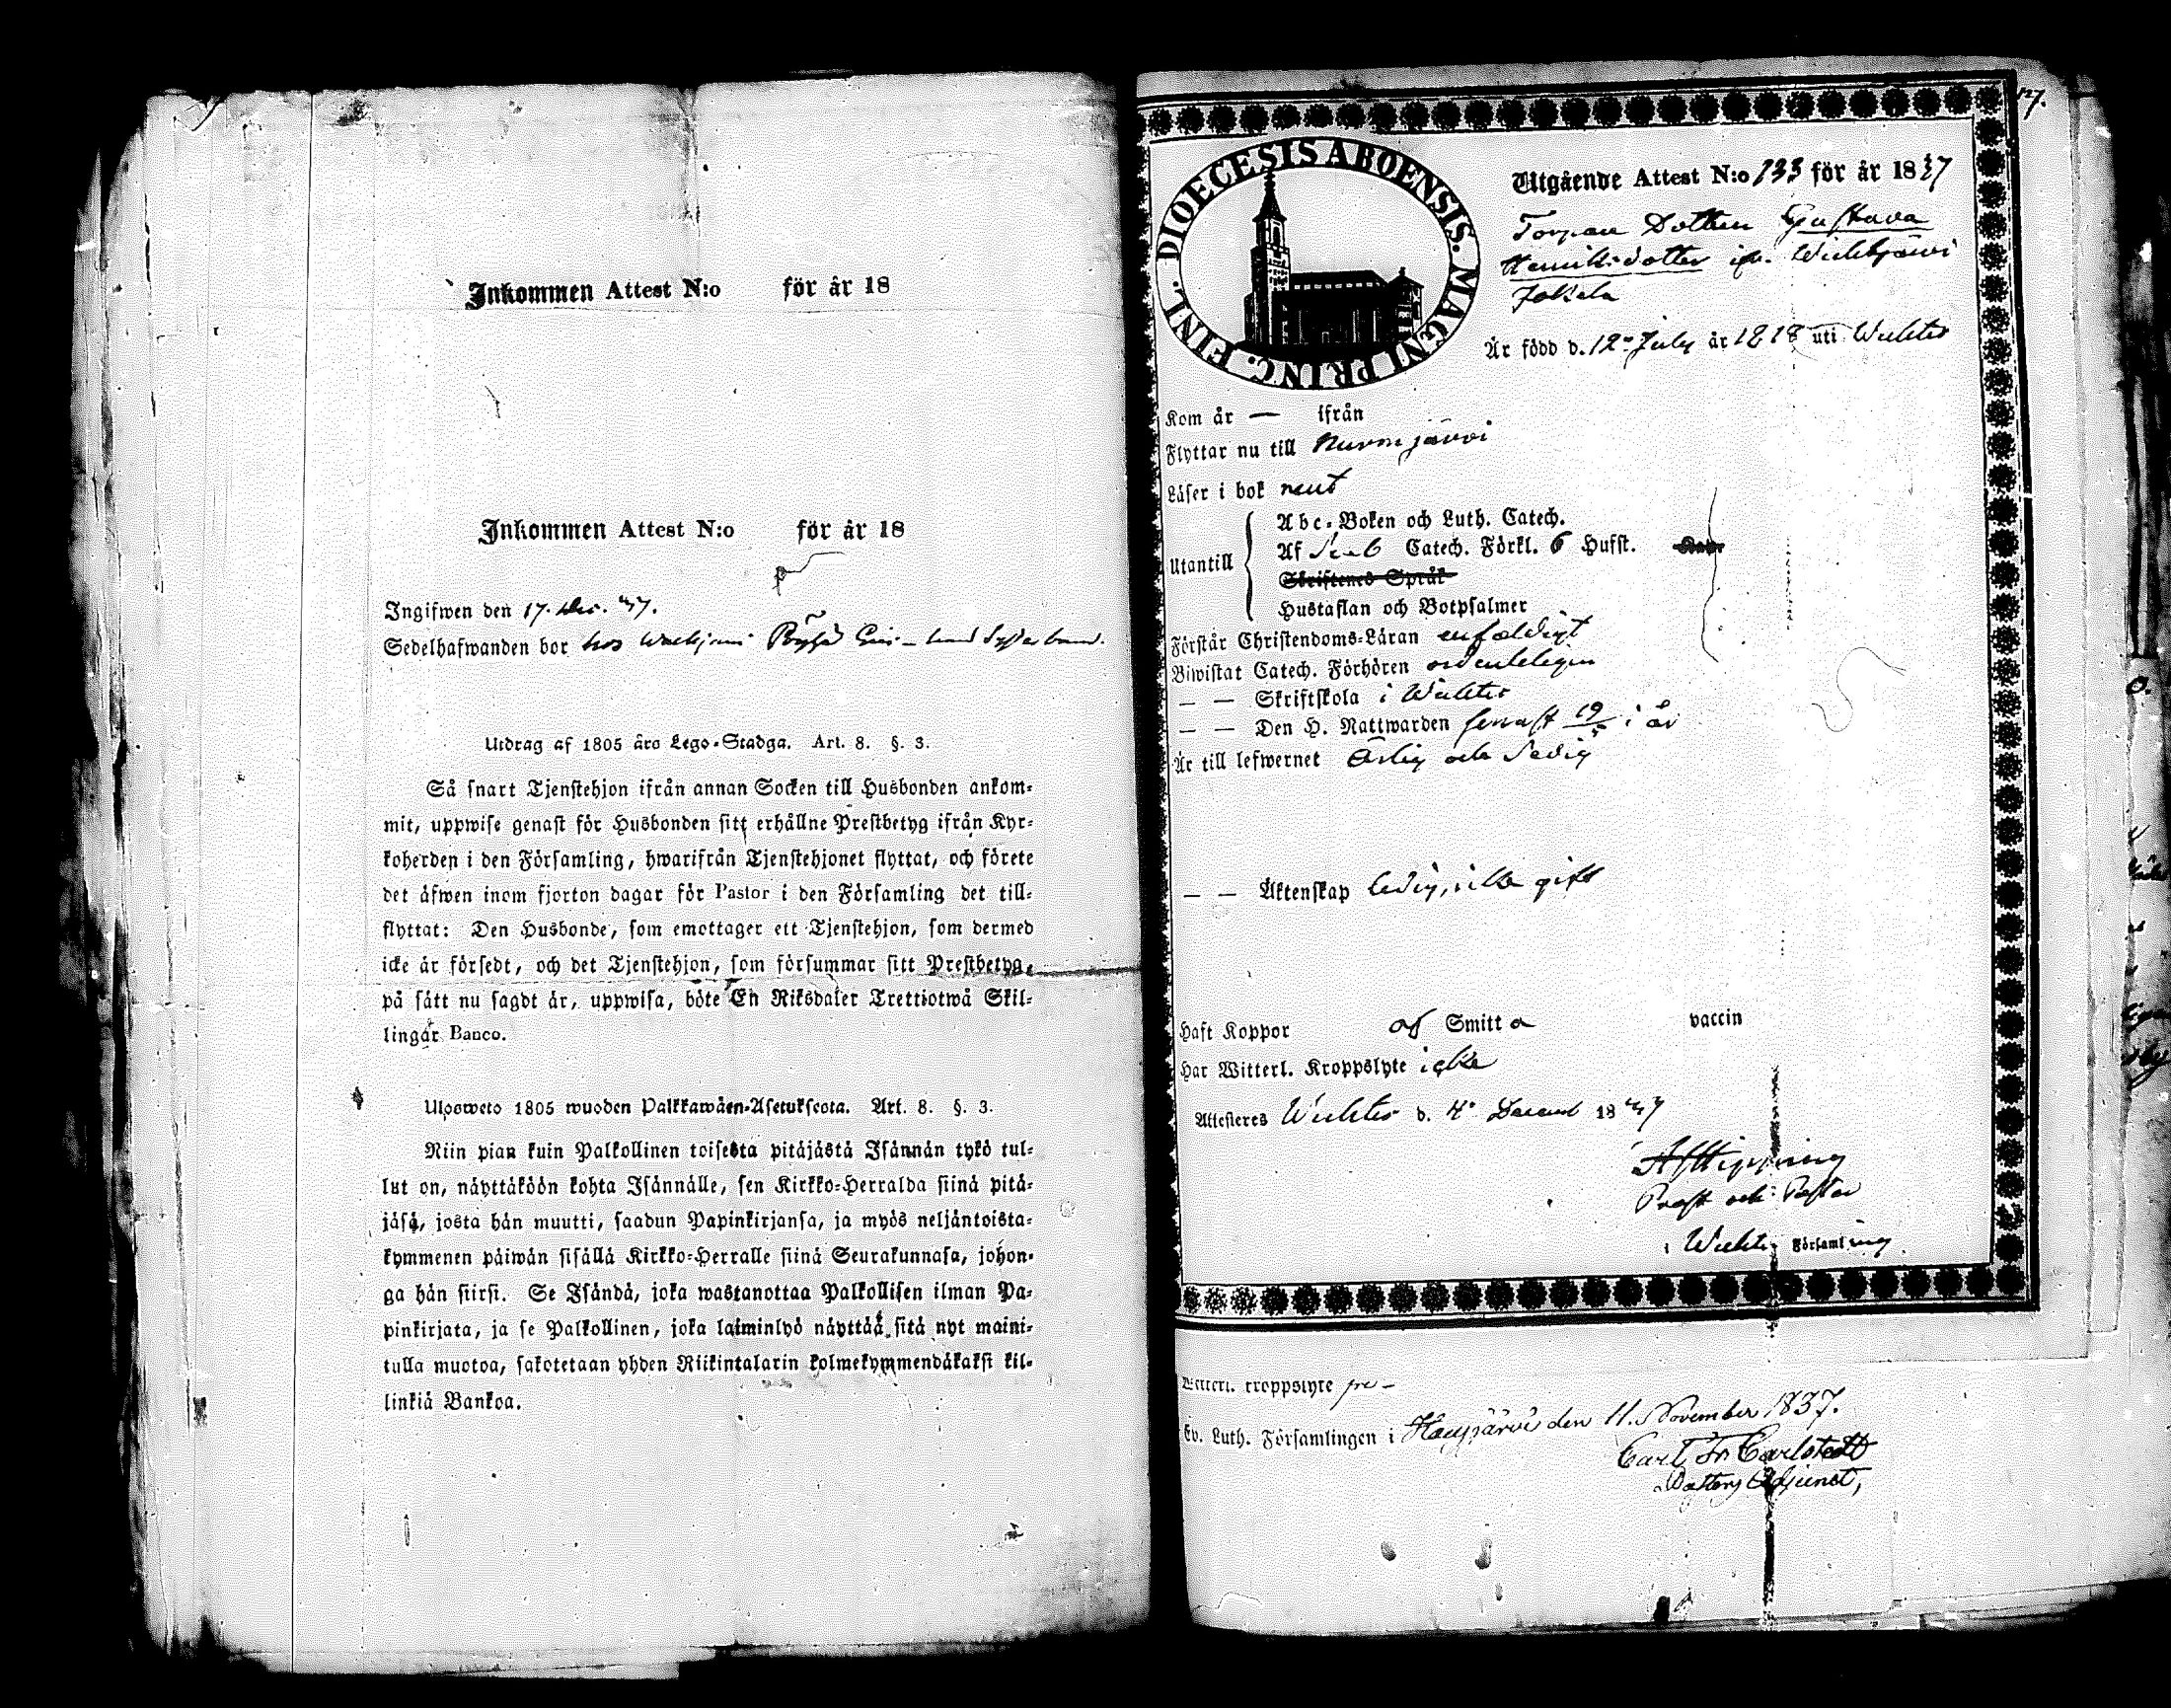 Inkommen Attest N:o för år 18
Inkommen Attest N:o för år 18
Ingifwen den 17. Dec. 37.
Sedelhafwanden bor hos
Utdrag af 1805 års Lego-Stadga. Art. 8. §. 3.
Så snart Tjenstehjon ifrån annan Socken till Husbonden ankom-
mit, uppwise genast för Husbonden sitt erhållne Prestbetyg ifrån Kyr-
koherden i den Församling, hwarifrån Tjenstehjonet flyttat, och förete
det äfwen inom fjorton dagar för Pastor i den Församling det till-
flyttat: Den Husbonde, som emottager ett Tjenstehjon, som dermed
icke är försedt, och det Tjenstehjon, som försummar sitt Prestbetyg,
på sätt nu sagdt är, uppwisa, böte En Riksdaler Trettiotwå Skil-
lingar Banco.
Ulosweto 1805 wuoden Palkkawäen-Asetuksesta. Art. 8. §. 3.
Niin pian kuin Palkollinen toisesta pitäjästä Isännän tykö tul-
lut on, näyttäköön kohta Isännälle, sen Kirkko-Herralda siinä pitä-
jäsä, josta hän muutti, saadun Papinkirjansa, ja myös neljäntoista-
kymmenen päiwän sisällä Kirkko-Herralle siinä Seurakunnasa, johon-
ga hän siirsi. Se Isändä, joka wastanottaa Palkollisen ilman Pa-
pinkirjata, ja se Palkollinen, joka laiminlyö näyttää sitä nyt maini-
tulla muotoa, sakotetaan yhden Riikintalarin kolmekymmendäkaksi kil-
linkiä Bankoa.
127.
DIOECESIS ABOENSIS. MAGNI PRINC. FINL.
Utgående Attest N:o 133 för år 1837
Torpare Dottren Gustava
Henriksdotter ifr. Wichtjärwi
Jokela
Är född d. 12 July år 1818 uti Wichtis
Kom år — ifrån
Flyttar nu till Nurmijärwi
Läser i bok rent
Utantill
Abc-Boken och Luth. Catech.
Af Sveb Catech. Förkl. 6 Hufst.
Skriftenes Språk
Hustaflan och Botpsalmer
Förstår Christendoms-Läran enfaldigt
Biwistat Catech. Förhören ordenteligen
— — Skriftskola i Wichtis
— — Den H. Nattwarden senast 19 i år
Är till lefwernet Ärlig och Sedig
— — Äktenskap ledig, till gifte
Haft Koppor af Smitta vaccin
Har Witterl. Kroppslyte icke
Attesteres Wichtis d. 4 Decemb 1837
Hipping
Prost och Pastor
i Wichtis Församling
Witterl. kroppslyte fri –
Ev. Luth. Församlingen i Hausjärvi den 11. November 1837.
Carl Fr Carlstedt
Pastors Adjunct,